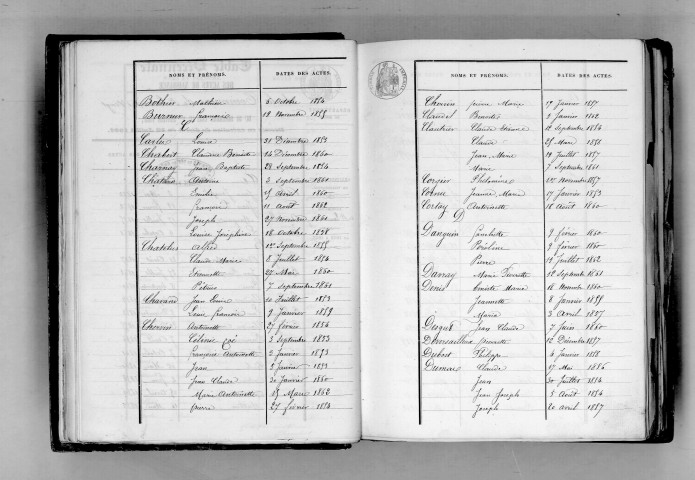 NOMS ET PRÉNOMS. DATES DES ACTES.
Mathieu 6 Octobre 1854
Burnier Françoise 18 Novembre 1855
C
Louise 31 Décembre 1853
Chabert Claudine Benoite 14 Décembre 1860
Charnay Jean Baptiste 28 Septembre 1854
Antoine 3 Septembre 1861
Emilie 15 Avril 1860
11 Août 1862
Joseph 27 Novembre 1860
Louise Josephine 18 Octobre 1858
Chatelus Alfred 1er Septembre 1855
Claude Marie 8 Juillet 1854
Etiennette 27 Mai 1860
7 Septembre 1861
Chavand Jean Louis 10 Juillet 1853
Louis François 9 Janvier 1859
Antoinette 27 février 1854
3 Septembre 1853
Françoise Antoinette 2 Janvier 1853
Jean 5 Janvier 1853
Jean Claude 30 Janvier 1860
Marie Antoinette 15 Mars 1862
Pierre 27 février 1854
NOMS ET PRÉNOMS. DATES DES ACTES.
Marie 17 Janvier 1857
Claudet Benoite 9 Janvier 1862
Claude Etienne 11 Septembre 1854
Claude 25 Mars 1856
Jean Marie 14 Juillet 1857
Marie 7 Septembre 1861
Philomène 1er Novembre 1857
Jeanne Marie 17 Janvier 1853
Antoinette 16 Août 1860
D
Danguin 9 février 1860
9 février 1860
Pierre 14 Juillet 1862
Marie Pierrette 12 Septembre 1861
Denis Marie 18 Novembre 1860
Jeannette 8 Janvier 1859
Maria 3 Avril 1857
Jean Claude 7 Juin 1860
12 Décembre 1857
Dubost Philippe 4 Janvier 1858
Dumas Claude 27 Mai 1856
Jean 30 Juillet 1854
Jean Joseph 5 Août 1854
Joseph 20 avril 1857